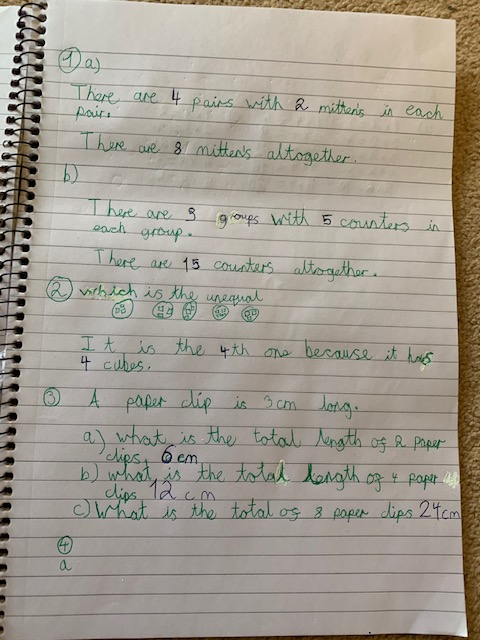 1 a)
There are 4 pairs with 2 mittens in each
pair.
There are 8 mittens altogether.
b)
There are 3 groups with 5 counters in
each group.
There are 15 counters altogether.
2 which is the unequal
It is the 4th one because it has
4 cubes.
3 A paper clip is 3cm long.
a) what is the total length of 2 paper
clips, 6 cm
b) what is the total length of 4 paper
clips 12 cm
c) What is the total of 8 paper clips 24cm
4
a